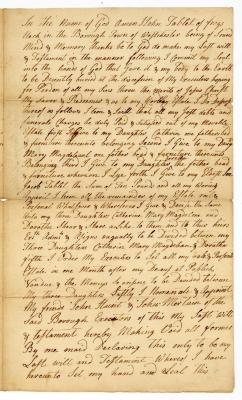 In the Name of God Amen I John Tablet of Frogs
Neck in the Borough Town of Westchester being of Sound
Mind & Memory thanks be to God do make my Last will
& Testament in the manner following I commit my Soul
into the hands of God that Gave it & my body to the Earth
to be Decently buried at the discretion of My Executors hoping
for Pardon of all my Sins thro the merits of Jesus Christ
My Savour & Redeemer & as to my Worldly Estate I Do dispose
thereof as follows Item I will that all my Just debts and
funerall Charges be duly Paid & Satisfied out of my Moveable
Estate first I give to my Daughter Catherine one feather bed
& furniture thereunto belonging Second I Give to my Daughter
Mary Magdalane one father bed & furniture thereunto
Belonging third I Give to my Daughter the feather bead
& furniture whereon I Lye forth I Give to my
Jacob Tablet the Sum of Ten Pound and as my
I them all the remainder of my Estate
Personal Whatsoever & Wheresoever I Give & Devise the Same
Unto my three Daughters Catherine Mary Magdalane and
Dorothe Share & Share alike to them and to their heirs
Each & Every Respectively to be Devided between my
Three Daughters Catherine Mary Magdalane & Dorothe
fifth I Order My Executors to Sell all my Personal
Estate in one Month after my Deceas at Publick
Vandue & the Moneys so arising to be Devided between
my three Daughters Sixtly I Nominate & Appoint
my friends John & John of the
Said Borough Executors of this My Last will
& testament hereby Making Void all former
By me maid Declaring this only to be my
Last will and Testament Whereof I have
hereunto Set my hand and Seal this